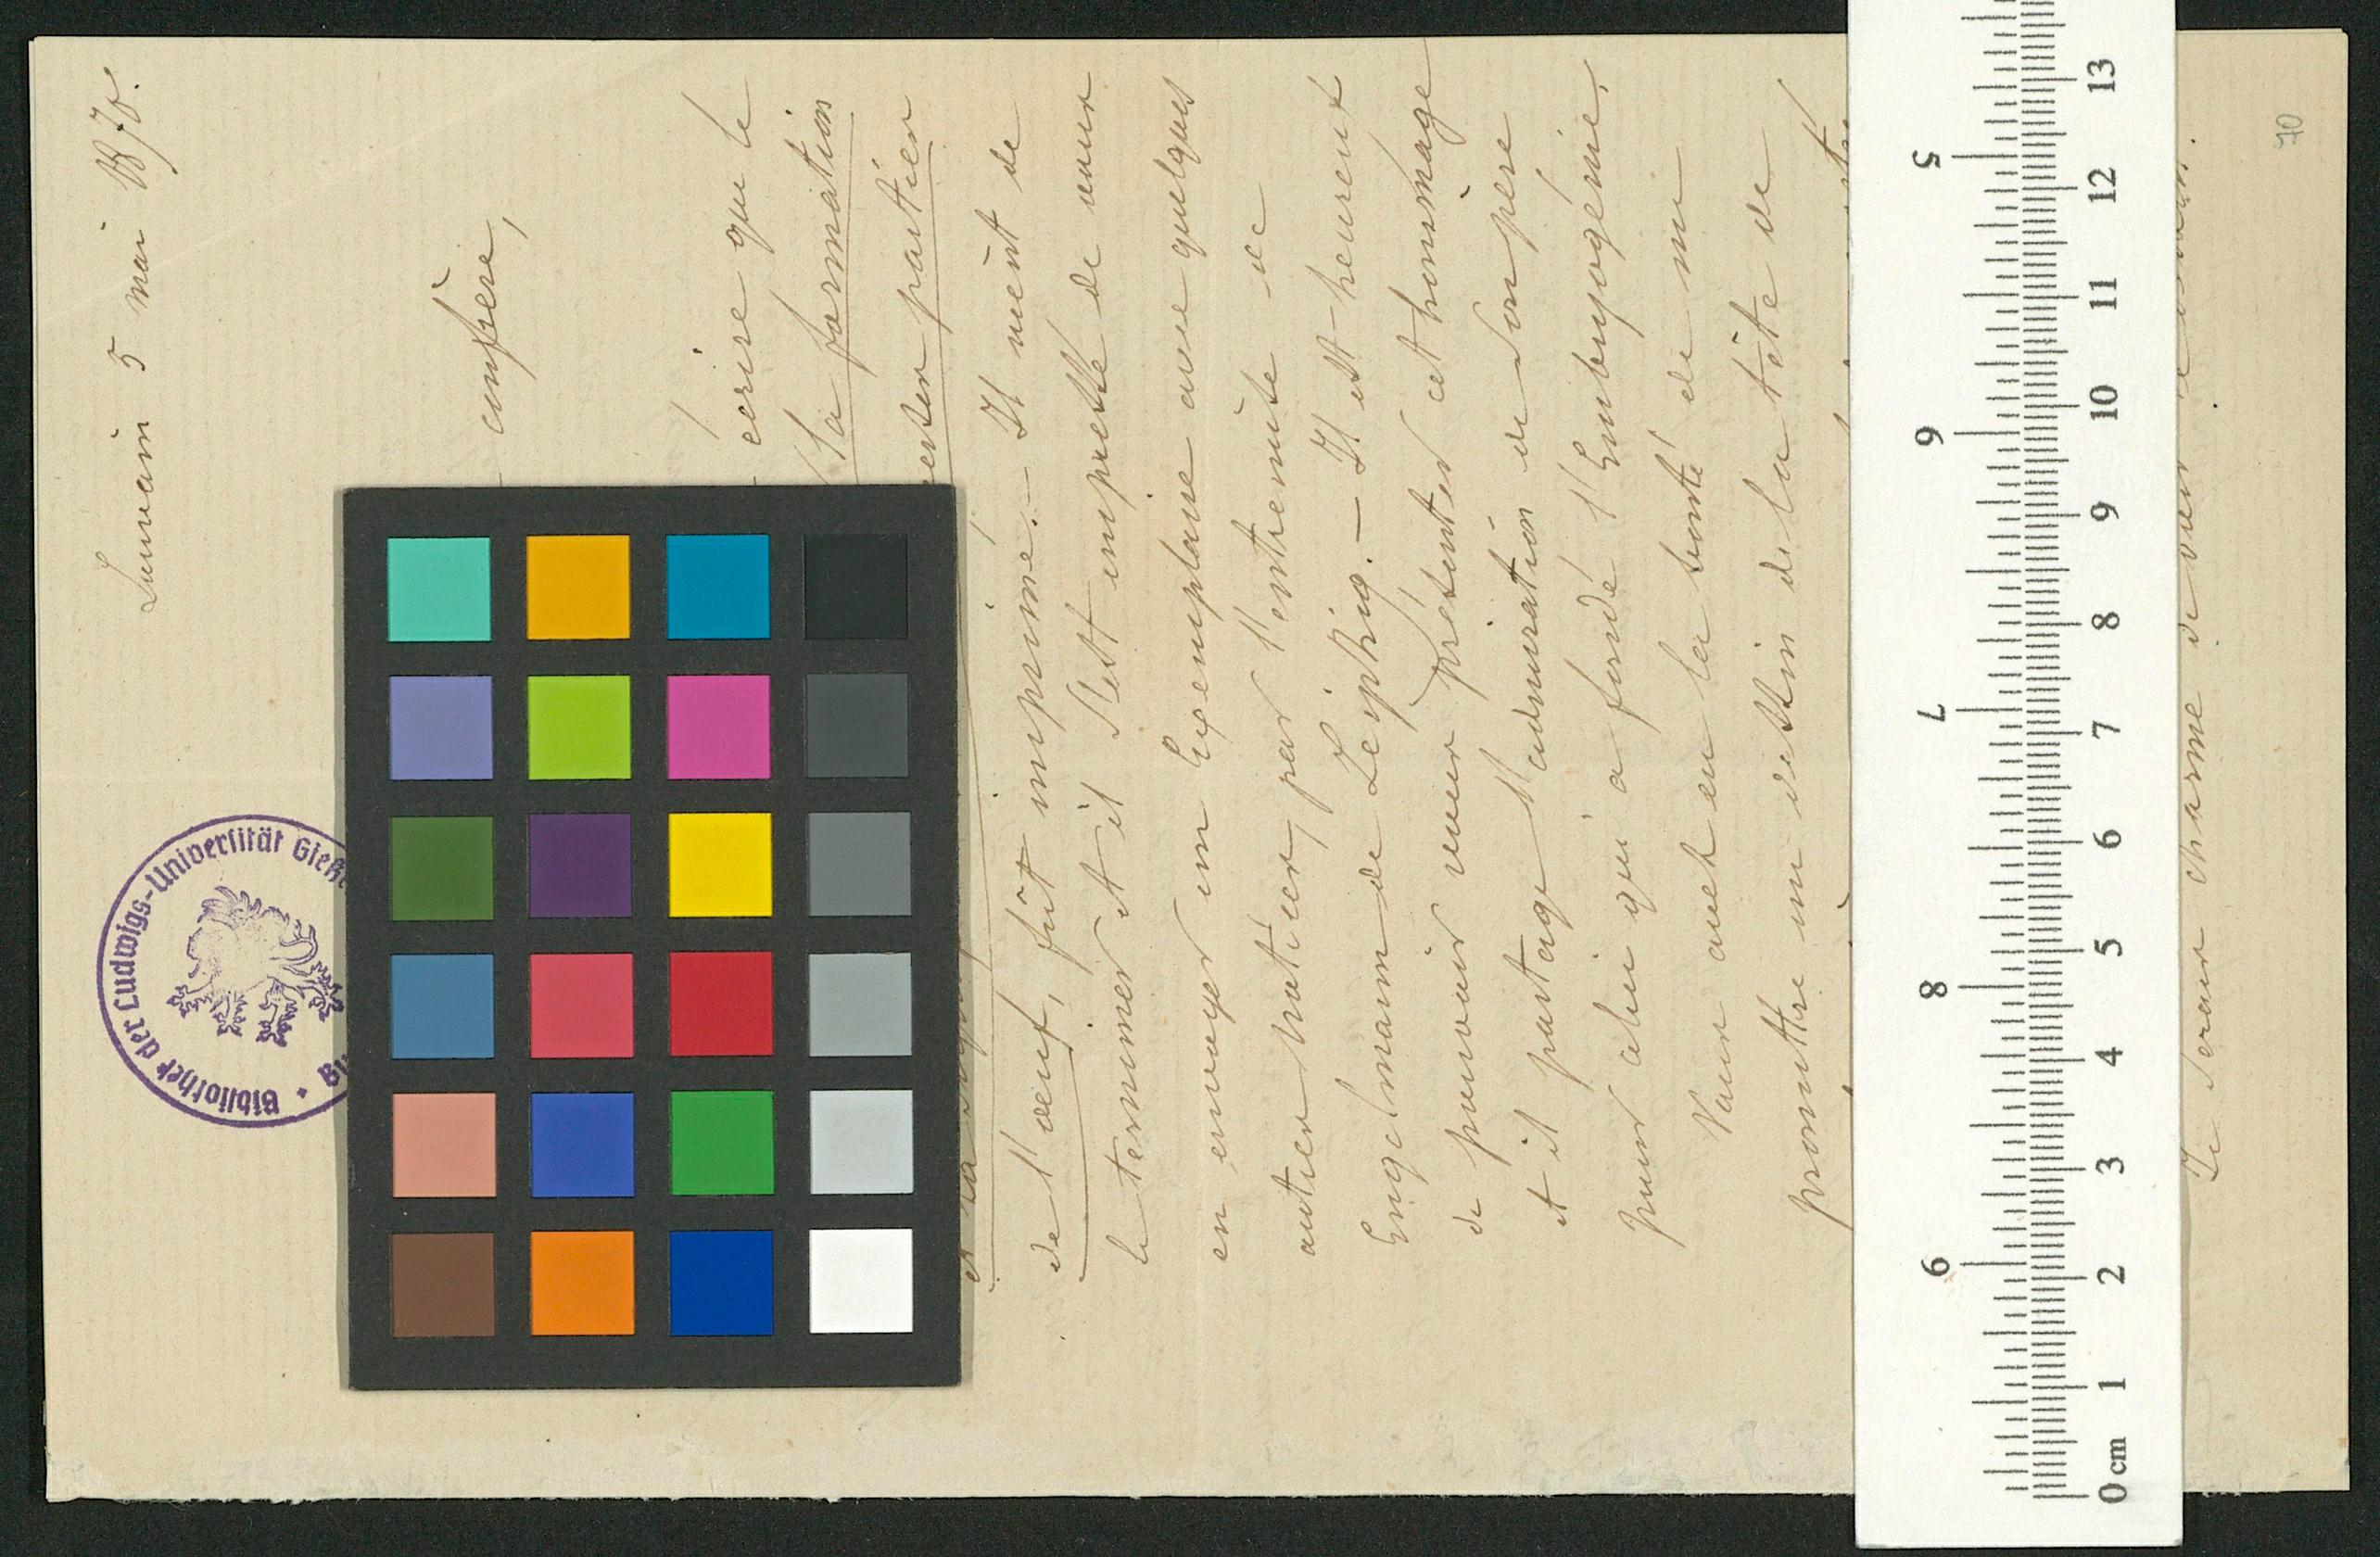 Louvain 5 mai 1878.
confrère,
écrire que le
la formation
premier partien
de l'œuf, fût imprimé. — Il vient de
le terminer et il s'est empressé de vous
en envoyer un Exemplaire avec quelques
autres notices, par l'entremise de
Engelmann de Leipzig. — Il est heureux
de pouvoir vous présenter cet hommage
et il partage l'admiration de son père
pour celui qui a fondé l'Embryogénie,
Vous avez eu la bonté de me
promettre un dessin de la tête de
Je serais charmé de
70
Bibliothek der Ludwigs-Universität Gieß
0 cm 1 2 3 4 5 6 7 8 9 10 11 12 13
5 6 7 8 9